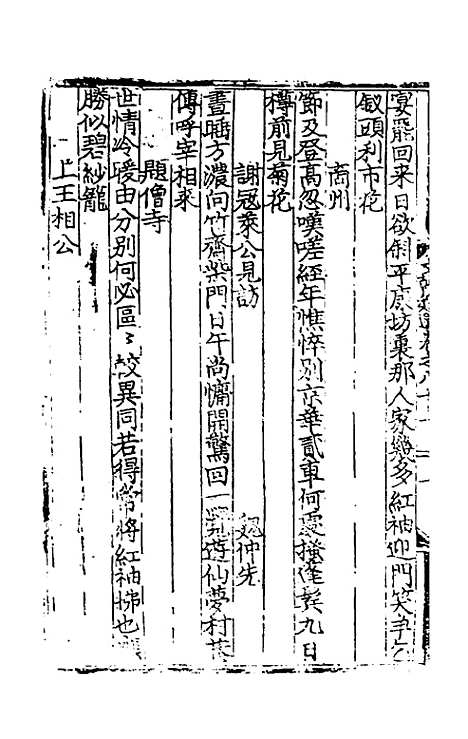 宴罷回来日欲斜平康坊裏那人家幾多紅袖迎門笑争乞
釵頭利市花
商州
節及登高忽嘆嗟經年憔悴别京華貳車何處搔蓬鬂九日
樽前見菊花
謝冦萊公見訪 魏仲先
晝睡方濃向竹齋柴門日午尚慵開驚回一覺遊仙夢村巷
傳呼宰相来
題僧寺
世情冷暖由分别何必區〻較異同若得常將紅袖拂也
勝似碧紗籠
上王相公